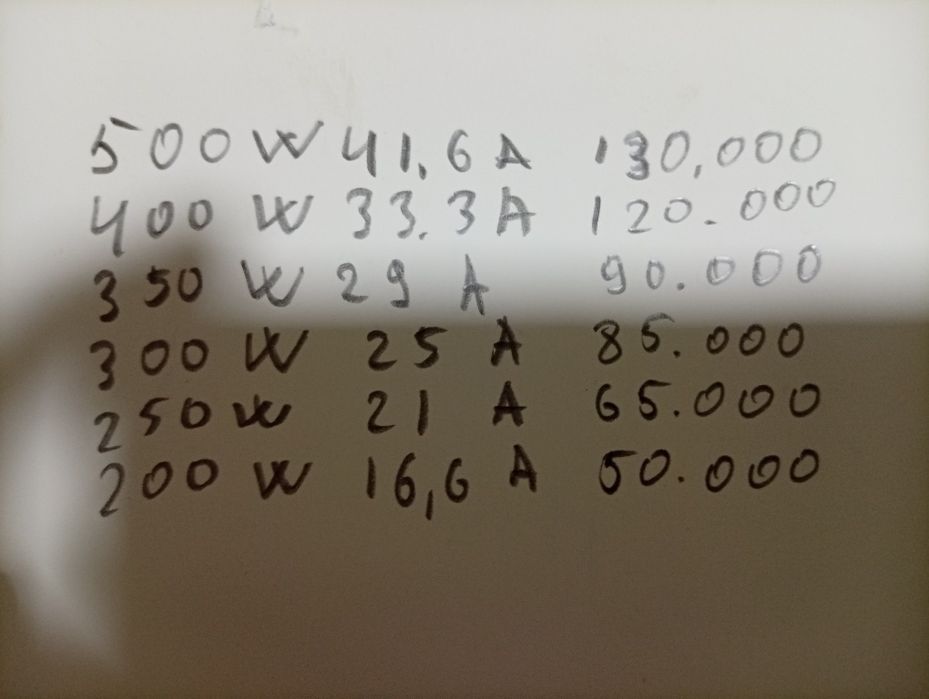 500 W 41.6 A 130,000
400 W 33.3 A 120.000
350 W 29 A 90.000
300 W 25 A 85.000
250 W 21 A 65.000
200 W 16,6 A 50.000